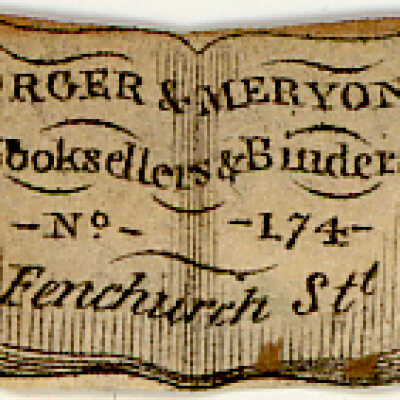 ORGER & MERYON
Booksellers & Binders
- No. - - 174 -
Fenchurch Stt